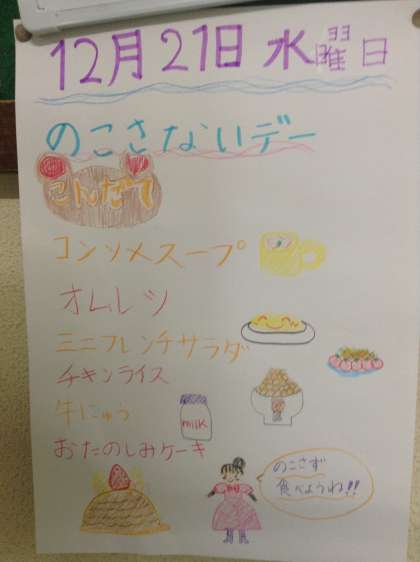 12月21日 水曜日
のこさないデー
こんだて
コンソメスープ
オムレツ
ミニフレンチサラダ
チキンライス
牛にゅう
milk
おたのしみケーキ
のこさず
食べようね!!